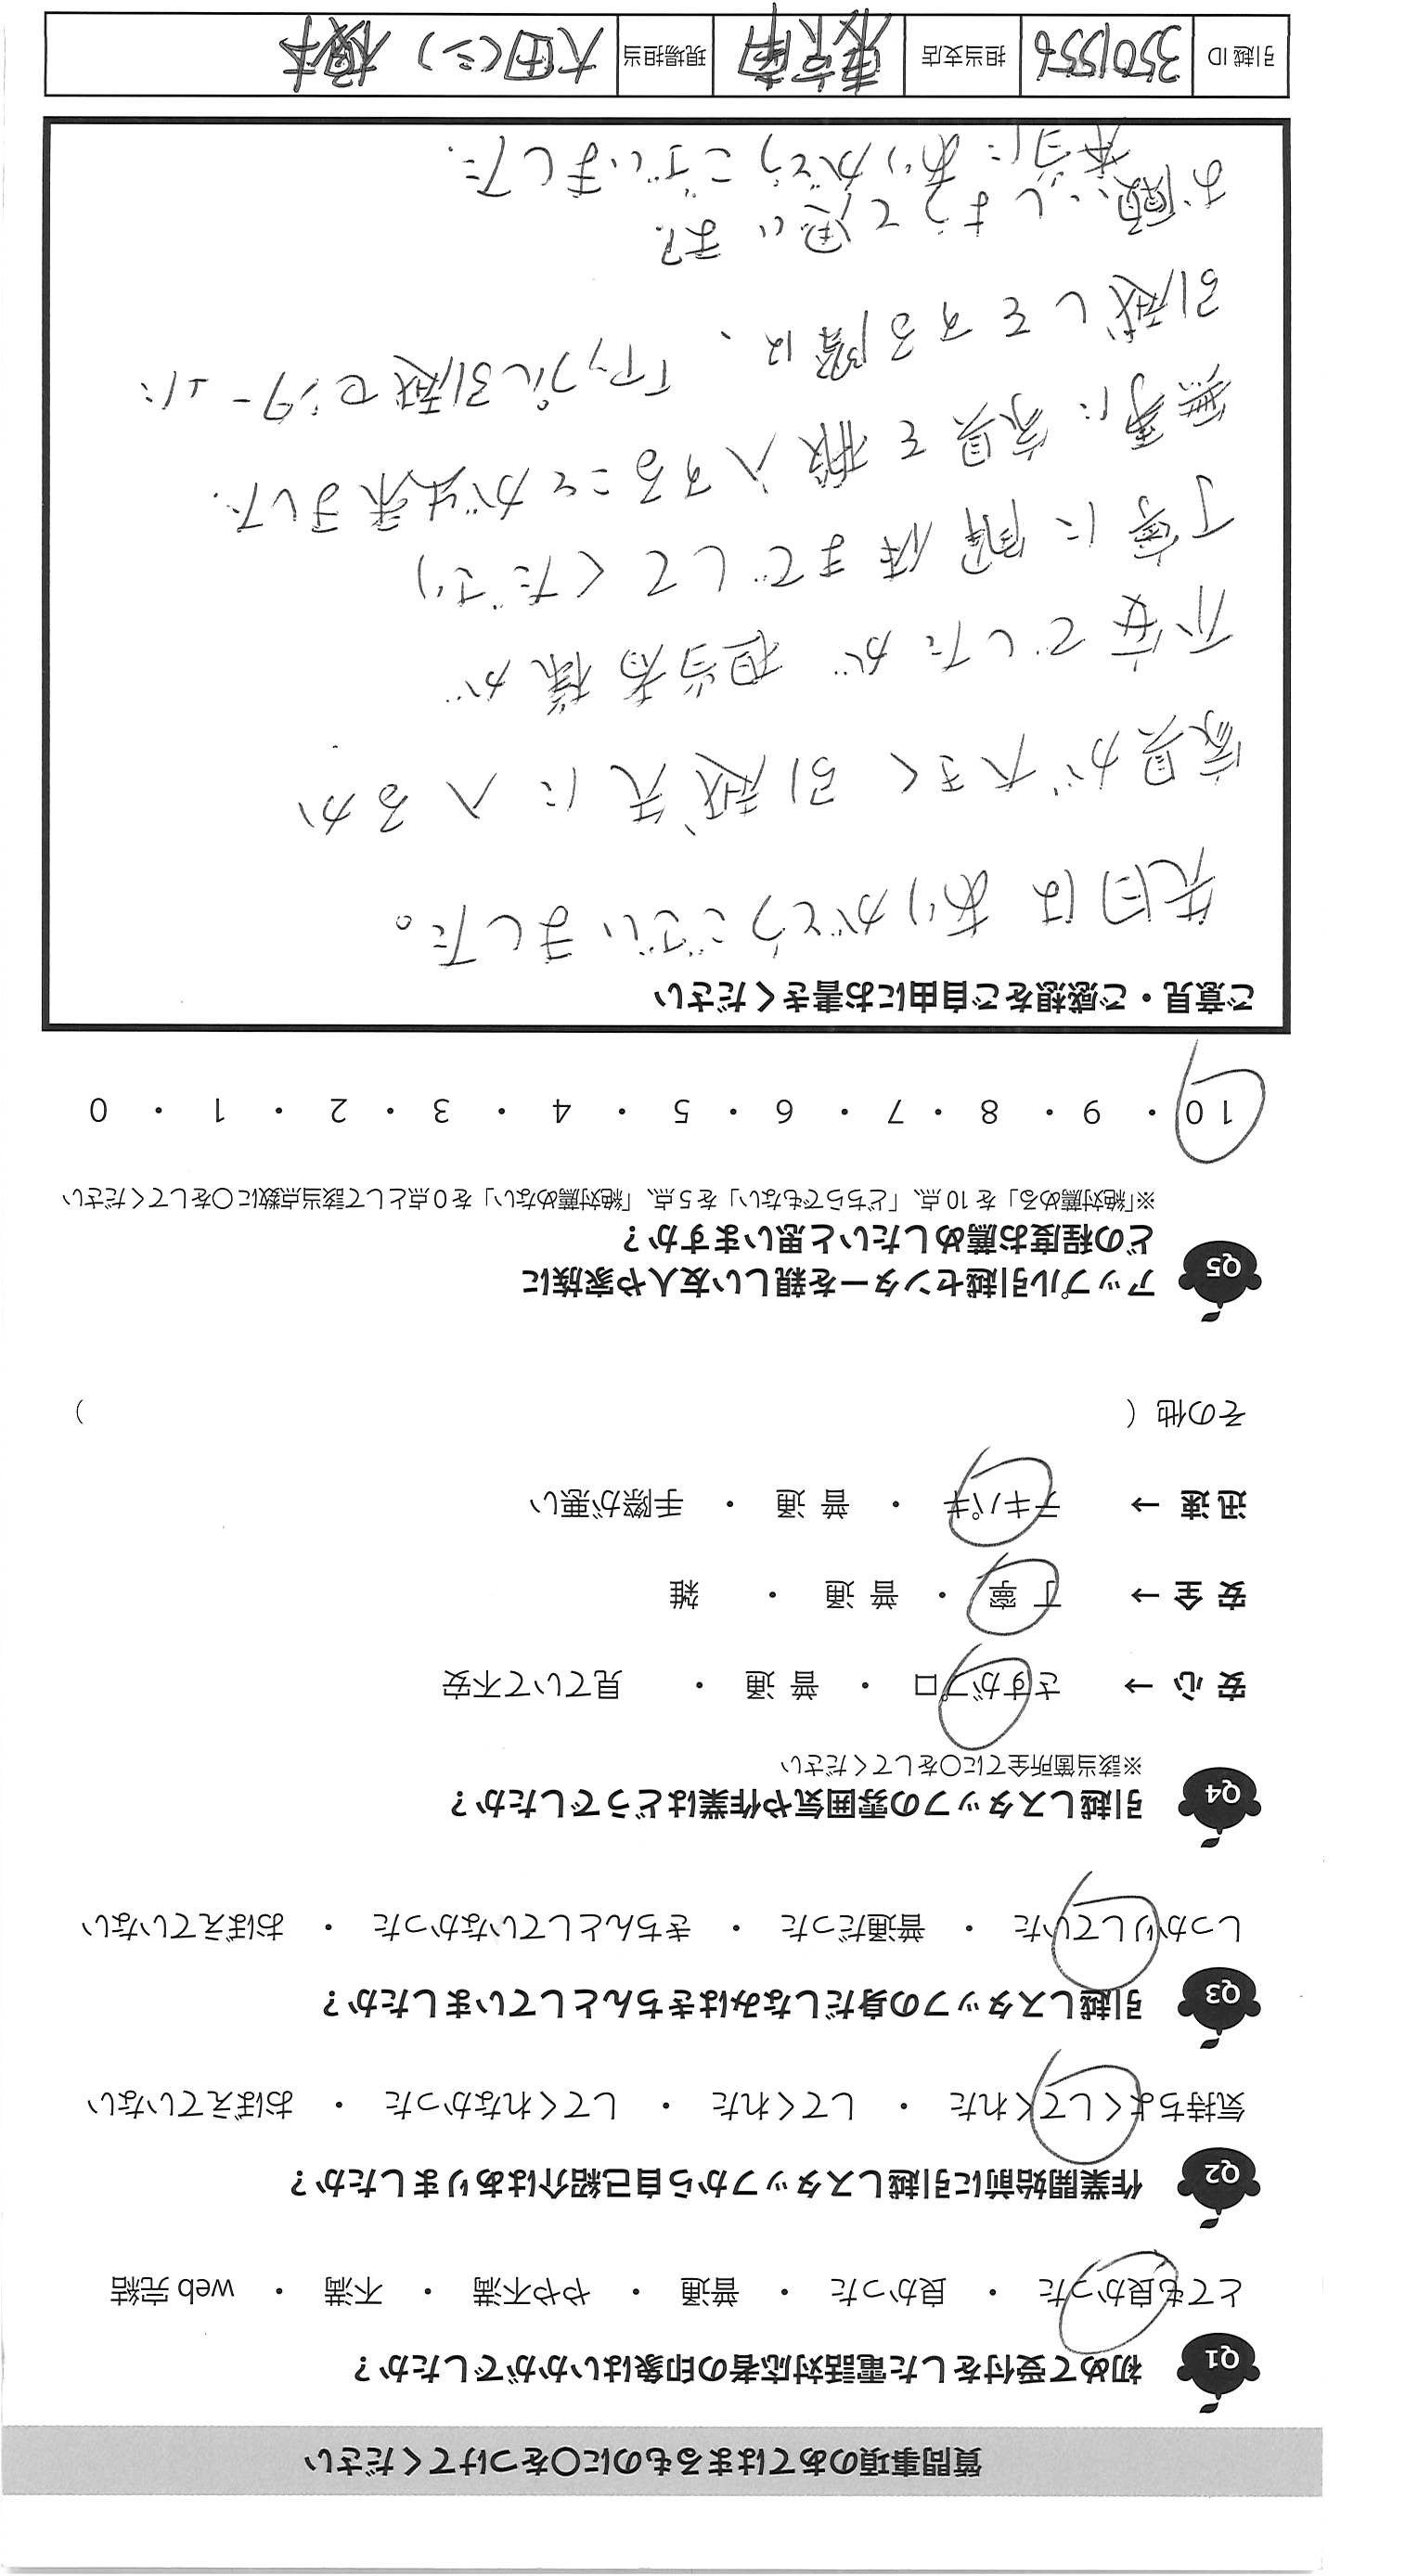 質問事項のあてはまるものに○をつけてください
Q1 初めて受付をした電話対応者の印象はいかがでしたか？
とても良かった ・ 良かった ・ 普通 ・ やや不満 ・ 不満 ・ web 完結
Q2 作業開始前に引越しスタッフから自己紹介はありましたか？
気持ちよくしてくれた ・ してくれた ・ してくれなかった ・ おぼえていない
Q3 引越しスタッフの身だしなみはきちんとしていましたか？
しっかりしていた ・ 普通だった ・ きちんとしていなかった ・ おぼえていない
Q4 引越しスタッフの雰囲気や作業はどうでしたか？
※該当箇所全てに○をして下ください
安 心 → さすがプロ ・ 普 通 ・ 見ていて不安
安 全 → 丁 寧 ・ 普 通 ・ 雑
迅 速 → テキパキ ・ 普 通 ・ 手際が悪い
その他（ ）
Q5 アップル引越センターを親しい友人や家族に
どの程度お薦めしたいと思いますか？
※「絶対薦める」を 10 点、「どちらでもない」を 5 点、「絶対薦めない」を 0 点として該当点数に○をしてください
10 ・ 9 ・ 8 ・ 7 ・ 6 ・ 5 ・ 4 ・ 3 ・ 2 ・ 1 ・ 0
ご意見・ご感想をご自由にお書きください
先日は ありがとうございました。
家具が大きく 引越先に入るか
不安でしたが 担当者様が
丁寧に解体までしてくださり
無事に家具を搬入することが出来ました.
引越しをする際は、「アップル引越センター」に
お願いしようて思います.
本当に ありがとうございました.
引越 ID 3501556 担当支店 東京南 現場担当 大田(シ) 榎本